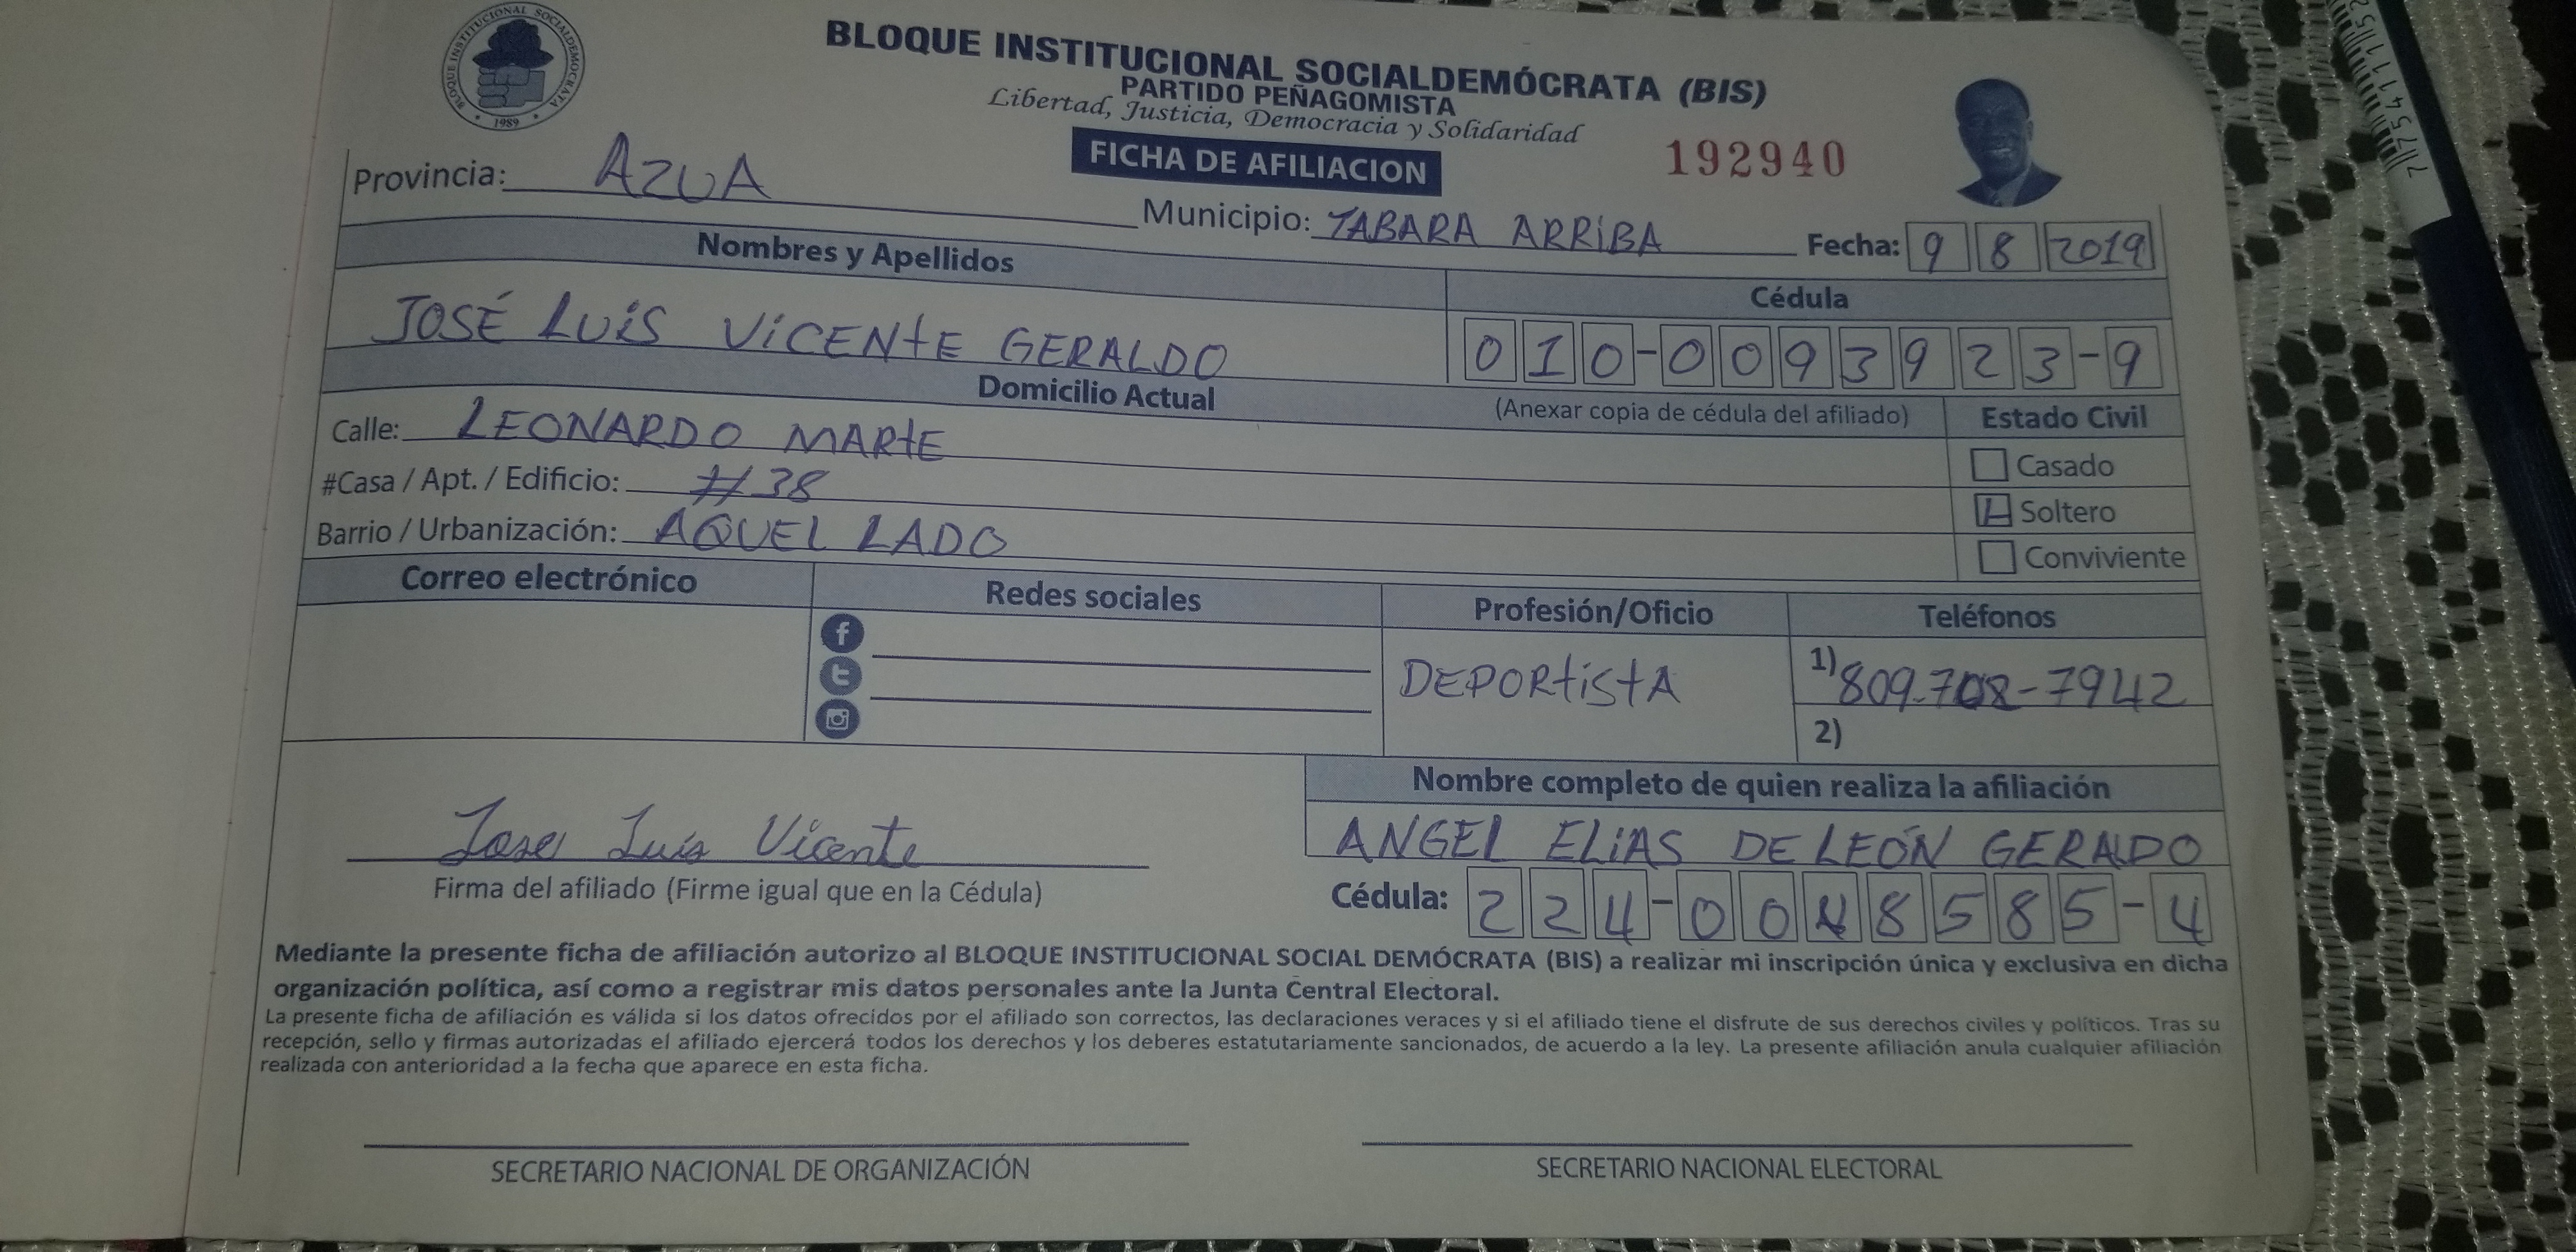 BLOQUE INSTITUCIONAL SOCIALDEMOCRATA
1989
BLOQUE INSTITUCIONAL SOCIALDEMÓCRATA (BIS)
PARTIDO PEÑAGOMISTA
Libertad, Justicia, Democracia y Solidaridad
FICHA DE AFILIACION
192940
Provincia: AZUA
Municipio: TABARA ARRIBA
Fecha: 9 8 2019
Nombres y Apellidos
Cédula
JOSÉ LUIS VICENTE GERALDO
010-0093923-9
Domicilio Actual
(Anexar copia de cédula del afiliado)
Estado Civil
Calle: LEONARDO MARTE
Casado
#Casa / Apt. / Edificio: #38
Soltero
Barrio / Urbanización: AQUEL LADO
Conviviente
Correo electrónico
Redes sociales
Profesión/Oficio
Teléfonos
DEPORTISTA
1) 809-708-7942
2)
Nombre completo de quien realiza la afiliación
Jose Luis Vicente
ANGEL ELIAS DE LEÓN GERALDO
Firma del afiliado (Firme igual que en la Cédula)
Cédula: 224-0048585-4
Mediante la presente ficha de afiliación autorizo al BLOQUE INSTITUCIONAL SOCIAL DEMÓCRATA (BIS) a realizar mi inscripción única y exclusiva en dicha
organización política, así como a registrar mis datos personales ante la Junta Central Electoral.
La presente ficha de afiliación es válida si los datos ofrecidos por el afiliado son correctos, las declaraciones veraces y si el afiliado tiene el disfrute de sus derechos civiles y políticos. Tras su
recepción, sello y firmas autorizadas el afiliado ejercerá todos los derechos y los deberes estatutariamente sancionados, de acuerdo a la ley. La presente afiliación anula cualquier afiliación
realizada con anterioridad a la fecha que aparece en esta ficha.
SECRETARIO NACIONAL DE ORGANIZACIÓN
SECRETARIO NACIONAL ELECTORAL